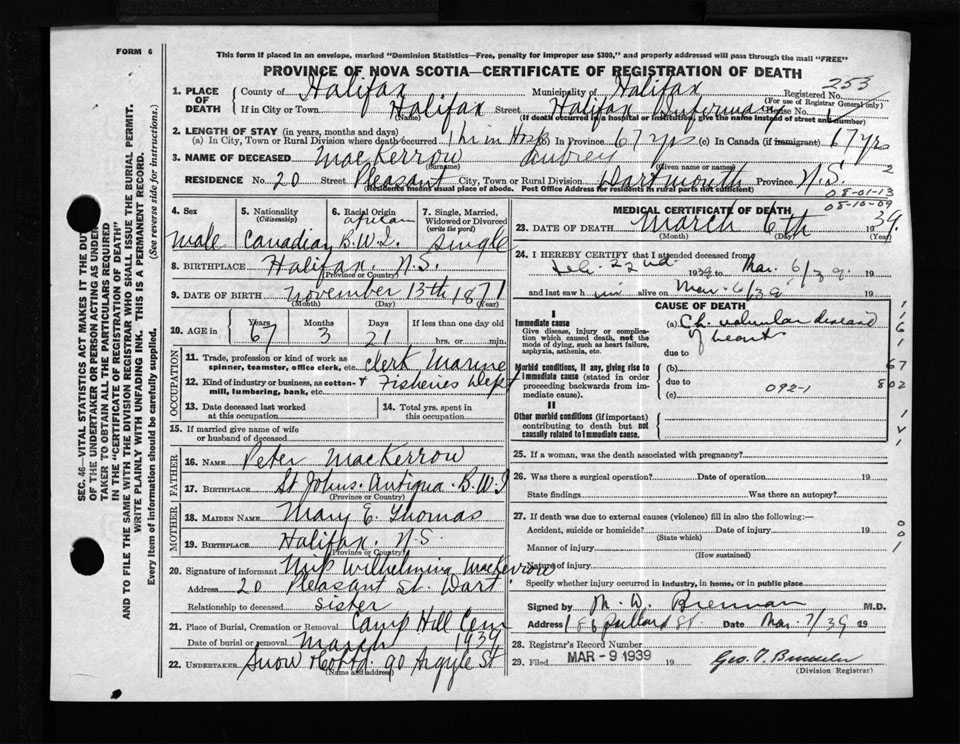 FORM 6
This form if placed in an envelope, marked "Dominion Statistics—Free, penalty for improper use $300," and properly addressed will pass through the mail "FREE"
PROVINCE OF NOVA SCOTIA—CERTIFICATE OF REGISTRATION OF DEATH
253
1. PLACE OF DEATH
County of Halifax Municipality of Halifax Registered No.
(For use of Registrar General only)
If in City or Town Halifax Street Halifax Infirmary House No.
(Name) (If death occurred in a hospital or institution, give the name instead of street and number)
2. LENGTH OF STAY (in years, months and days)
(a) In City, Town or Rural Division where death occurred 1 hr in Hosp (b) In Province 67 yrs (c) In Canada (if immigrant) 67 yrs
3. NAME OF DECEASED MacKerrow Aubrey
(Surname) (Given name or names)
RESIDENCE No. 20 Street Pleasant City, Town or Rural Division Dartmouth Province N.S. 2
(Residence means usual place of abode. Post Office Address for residents in rural parts not sufficient)
08-01-13
08-10-09
4. Sex
Male
5. Nationality (Citizenship)
Canadian
6. Racial Origin
African B.W.I.
7. Single, Married, Widowed or Divorced (write the word)
Single
8. BIRTHPLACE Halifax, N.S.
(Province or Country)
9. DATE OF BIRTH November 13th 1871
(Month) (Day) (Year)
10. AGE in Years Months Days If less than one day old
67 3 21 hrs. or min.
OCCUPATION
11. Trade, profession or kind of work as spinner, teamster, office clerk, etc. Clerk Marine
12. Kind of industry or business, as cotton-mill, lumbering, bank, etc. + Fisheries Dept
13. Date deceased last worked at this occupation
14. Total yrs. spent in this occupation
15. If married give name of wife or husband of deceased
FATHER
16. NAME Peter MacKerrow
17. BIRTHPLACE St Johns. Antigua. B.W.I
(Province or Country)
MOTHER
18. MAIDEN NAME Mary E. Thomas
19. BIRTHPLACE Halifax, N.S.
(Province or Country)
20. Signature of informant Miss Wilhelmina MacKerrow
Address 20 Pleasant St. Dart.
Relationship to deceased sister
21. Place of Burial, Cremation or Removal Camp Hill Cem
Date of burial or removal March 1939
22. UNDERTAKER Snow & Co Ltd. 90 Argyle St
(Name and address)
MEDICAL CERTIFICATE OF DEATH
23. DATE OF DEATH March 6th 1939.
(Month) (Day) (Year)
24. I HEREBY CERTIFY that I attended deceased from
Feb. 22nd 1939 to Mar. 6/39. 19
and last saw him alive on Mar. 6/39 19
CAUSE OF DEATH
I
Immediate cause
Give disease, injury or complication which caused death, not the mode of dying, such as heart failure, asphyxia, asthenia, etc.
(a) Ch. valvular disease of heart
due to
Morbid conditions, if any, giving rise to immediate cause (stated in order proceeding backwards from immediate cause).
(b)
due to 092-1
(c)
II
Other morbid conditions (if important) contributing to death but not causally related to immediate cause.
1161
67
802
25. If a woman, was the death associated with pregnancy?
26. Was there a surgical operation? Date of operation 19
State findings Was there an autopsy?
27. If death was due to external causes (violence) fill in also the following:—
Accident, suicide or homicide? Date of injury 19
(State which)
Manner of injury
(How sustained)
Nature of injury
Specify whether injury occurred in industry, in home, or in public place
001
Signed by M. W. Brennan M.D.
Address 186 St. Date Mar. 7/39 19
28. Registrar's Record Number
29. Filed MAR - 9 1939 19
(Division Registrar)
SEC. 46—VITAL STATISTICS ACT MAKES IT THE DUTY OF THE UNDERTAKER OR PERSON ACTING AS UNDERTAKER TO OBTAIN ALL THE PARTICULARS REQUIRED IN THE "CERTIFICATE OF REGISTRATION OF DEATH" AND TO FILE THE SAME WITH THE DIVISION REGISTRAR WHO SHALL ISSUE THE BURIAL PERMIT.
WRITE PLAINLY WITH UNFADING INK. THIS IS A PERMANENT RECORD.
Every item of information should be carefully supplied. (See reverse side for instructions.)